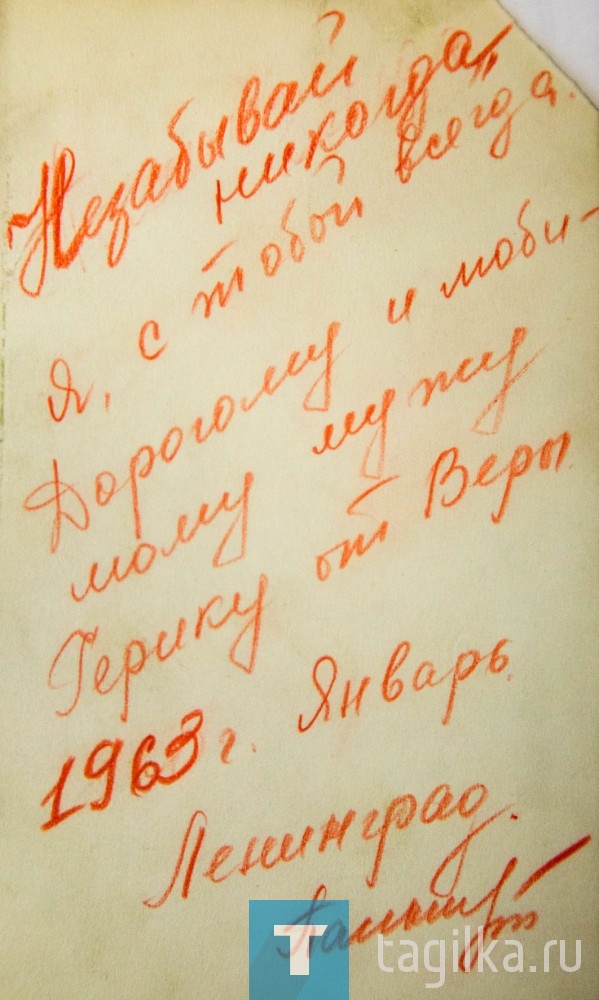 "Незабывай
никогда"
Я, с тобой всегда.
Дорогому и люби-
мому мужу
Герику от Веры.
1963 г. Январь.
Ленинград.
T
tagilka.ru